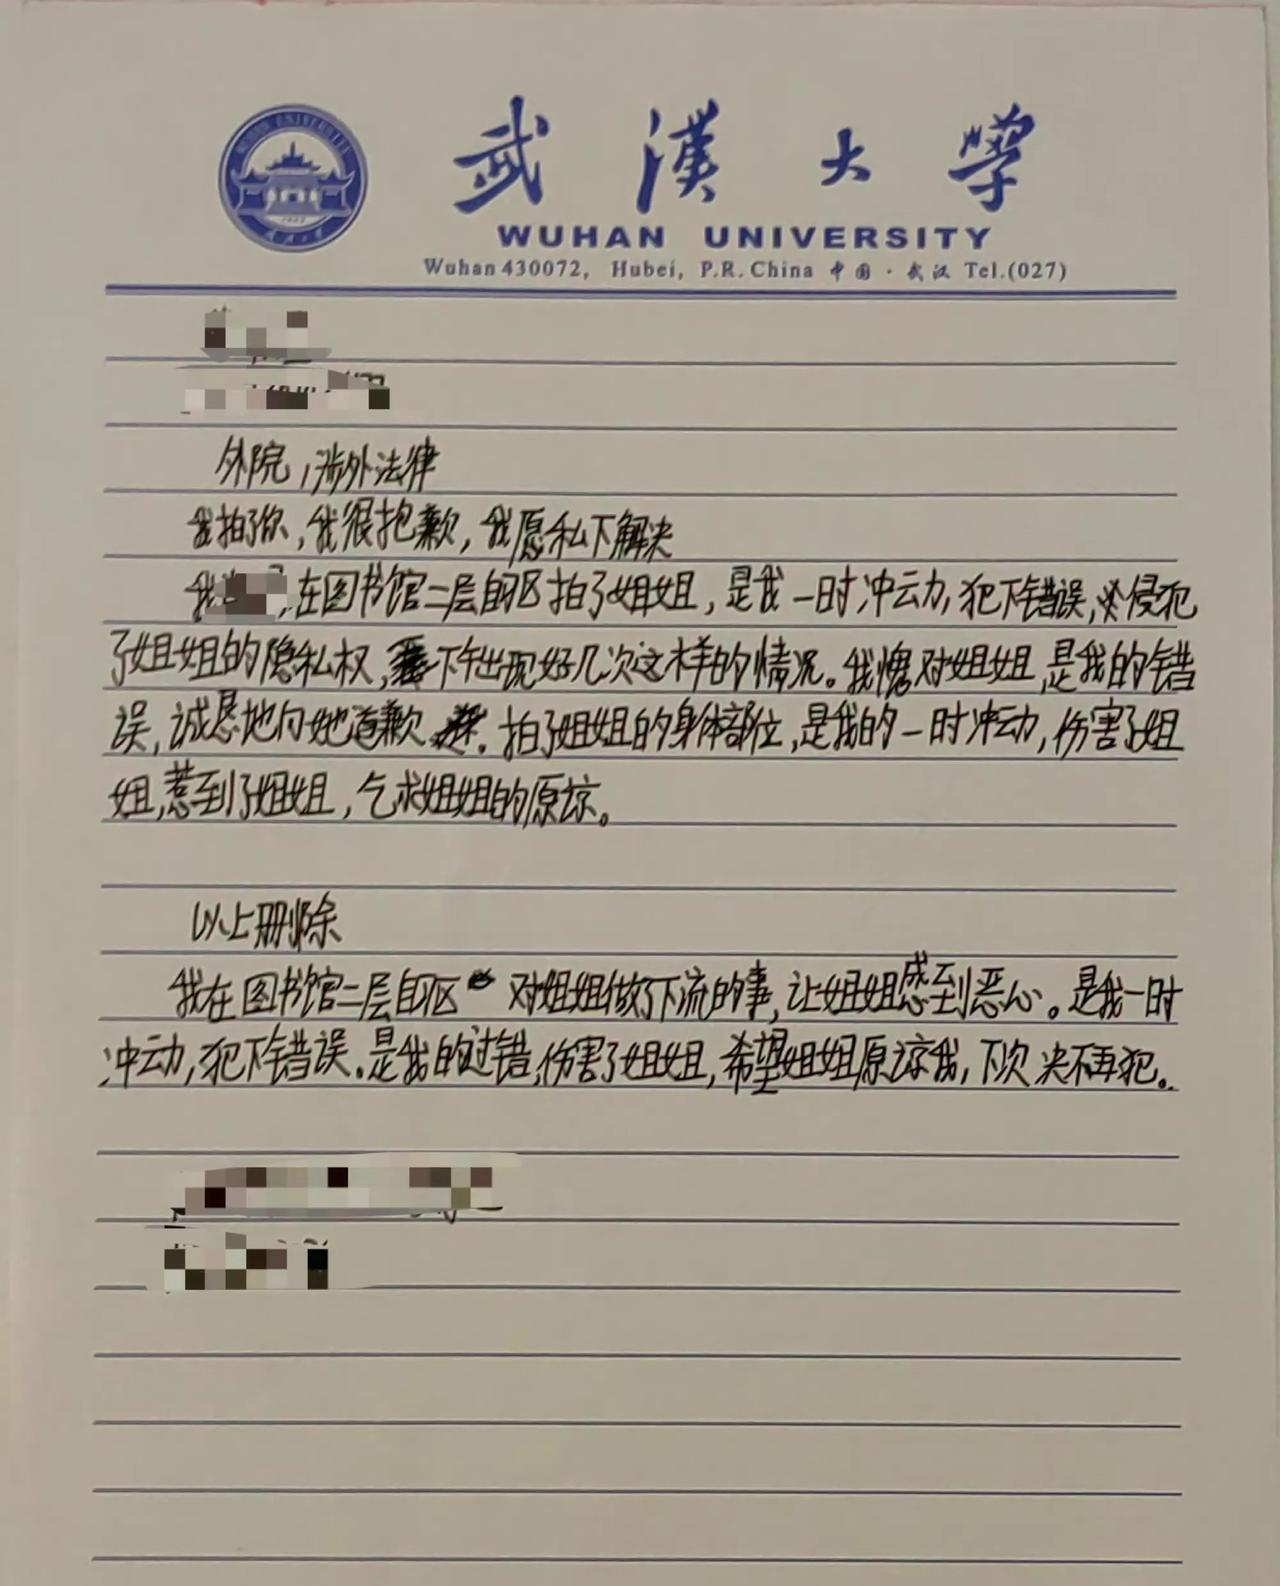 武漢大學
WUHAN UNIVERSITY
Wuhan 430072, Hubei, P.R. China 中国·武汉 Tel.(027)
外院,涉外法律
我拍了你,我很抱歉,我愿私下解决
我,在图书馆二层自习区拍了姐姐,是我一时冲动,犯下错误,侵犯
了姐姐的隐私权,下午出现好几次这样的情况。我愧对姐姐,是我的错
误,诚恳地向她道歉.拍了姐姐的身体部位,是我的一时冲动,伤害了姐
姐,惹到了姐姐,乞求姐姐的原谅。
以上删除
我在图书馆二层自习区对姐姐做了下流的事,让姐姐感到恶心。是我一时
冲动,犯下错误.是我的过错,伤害了姐姐,希望姐姐原谅我,下次决不再犯.